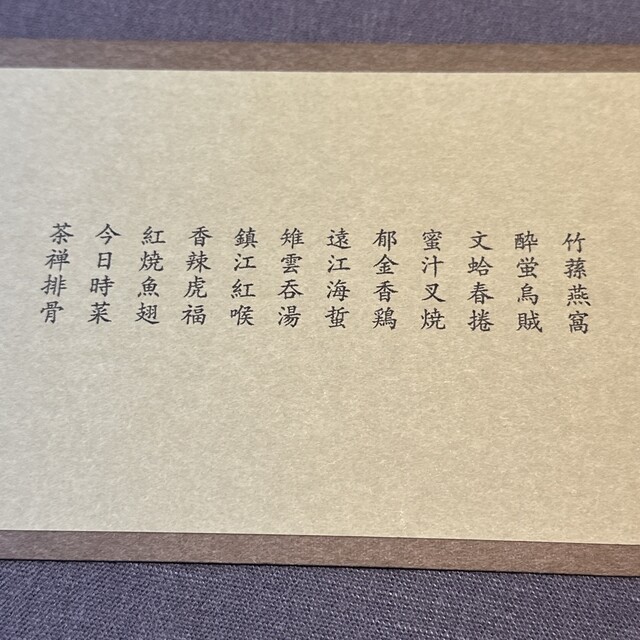 竹蓀燕窩
酔蛍烏賊
文蛤春捲
蜜汁叉焼
郁金香鶏
遠江海蜇
雉雲呑湯
鎮江紅喉
香辣虎福
紅焼魚翅
今日時菜
茶禅排骨